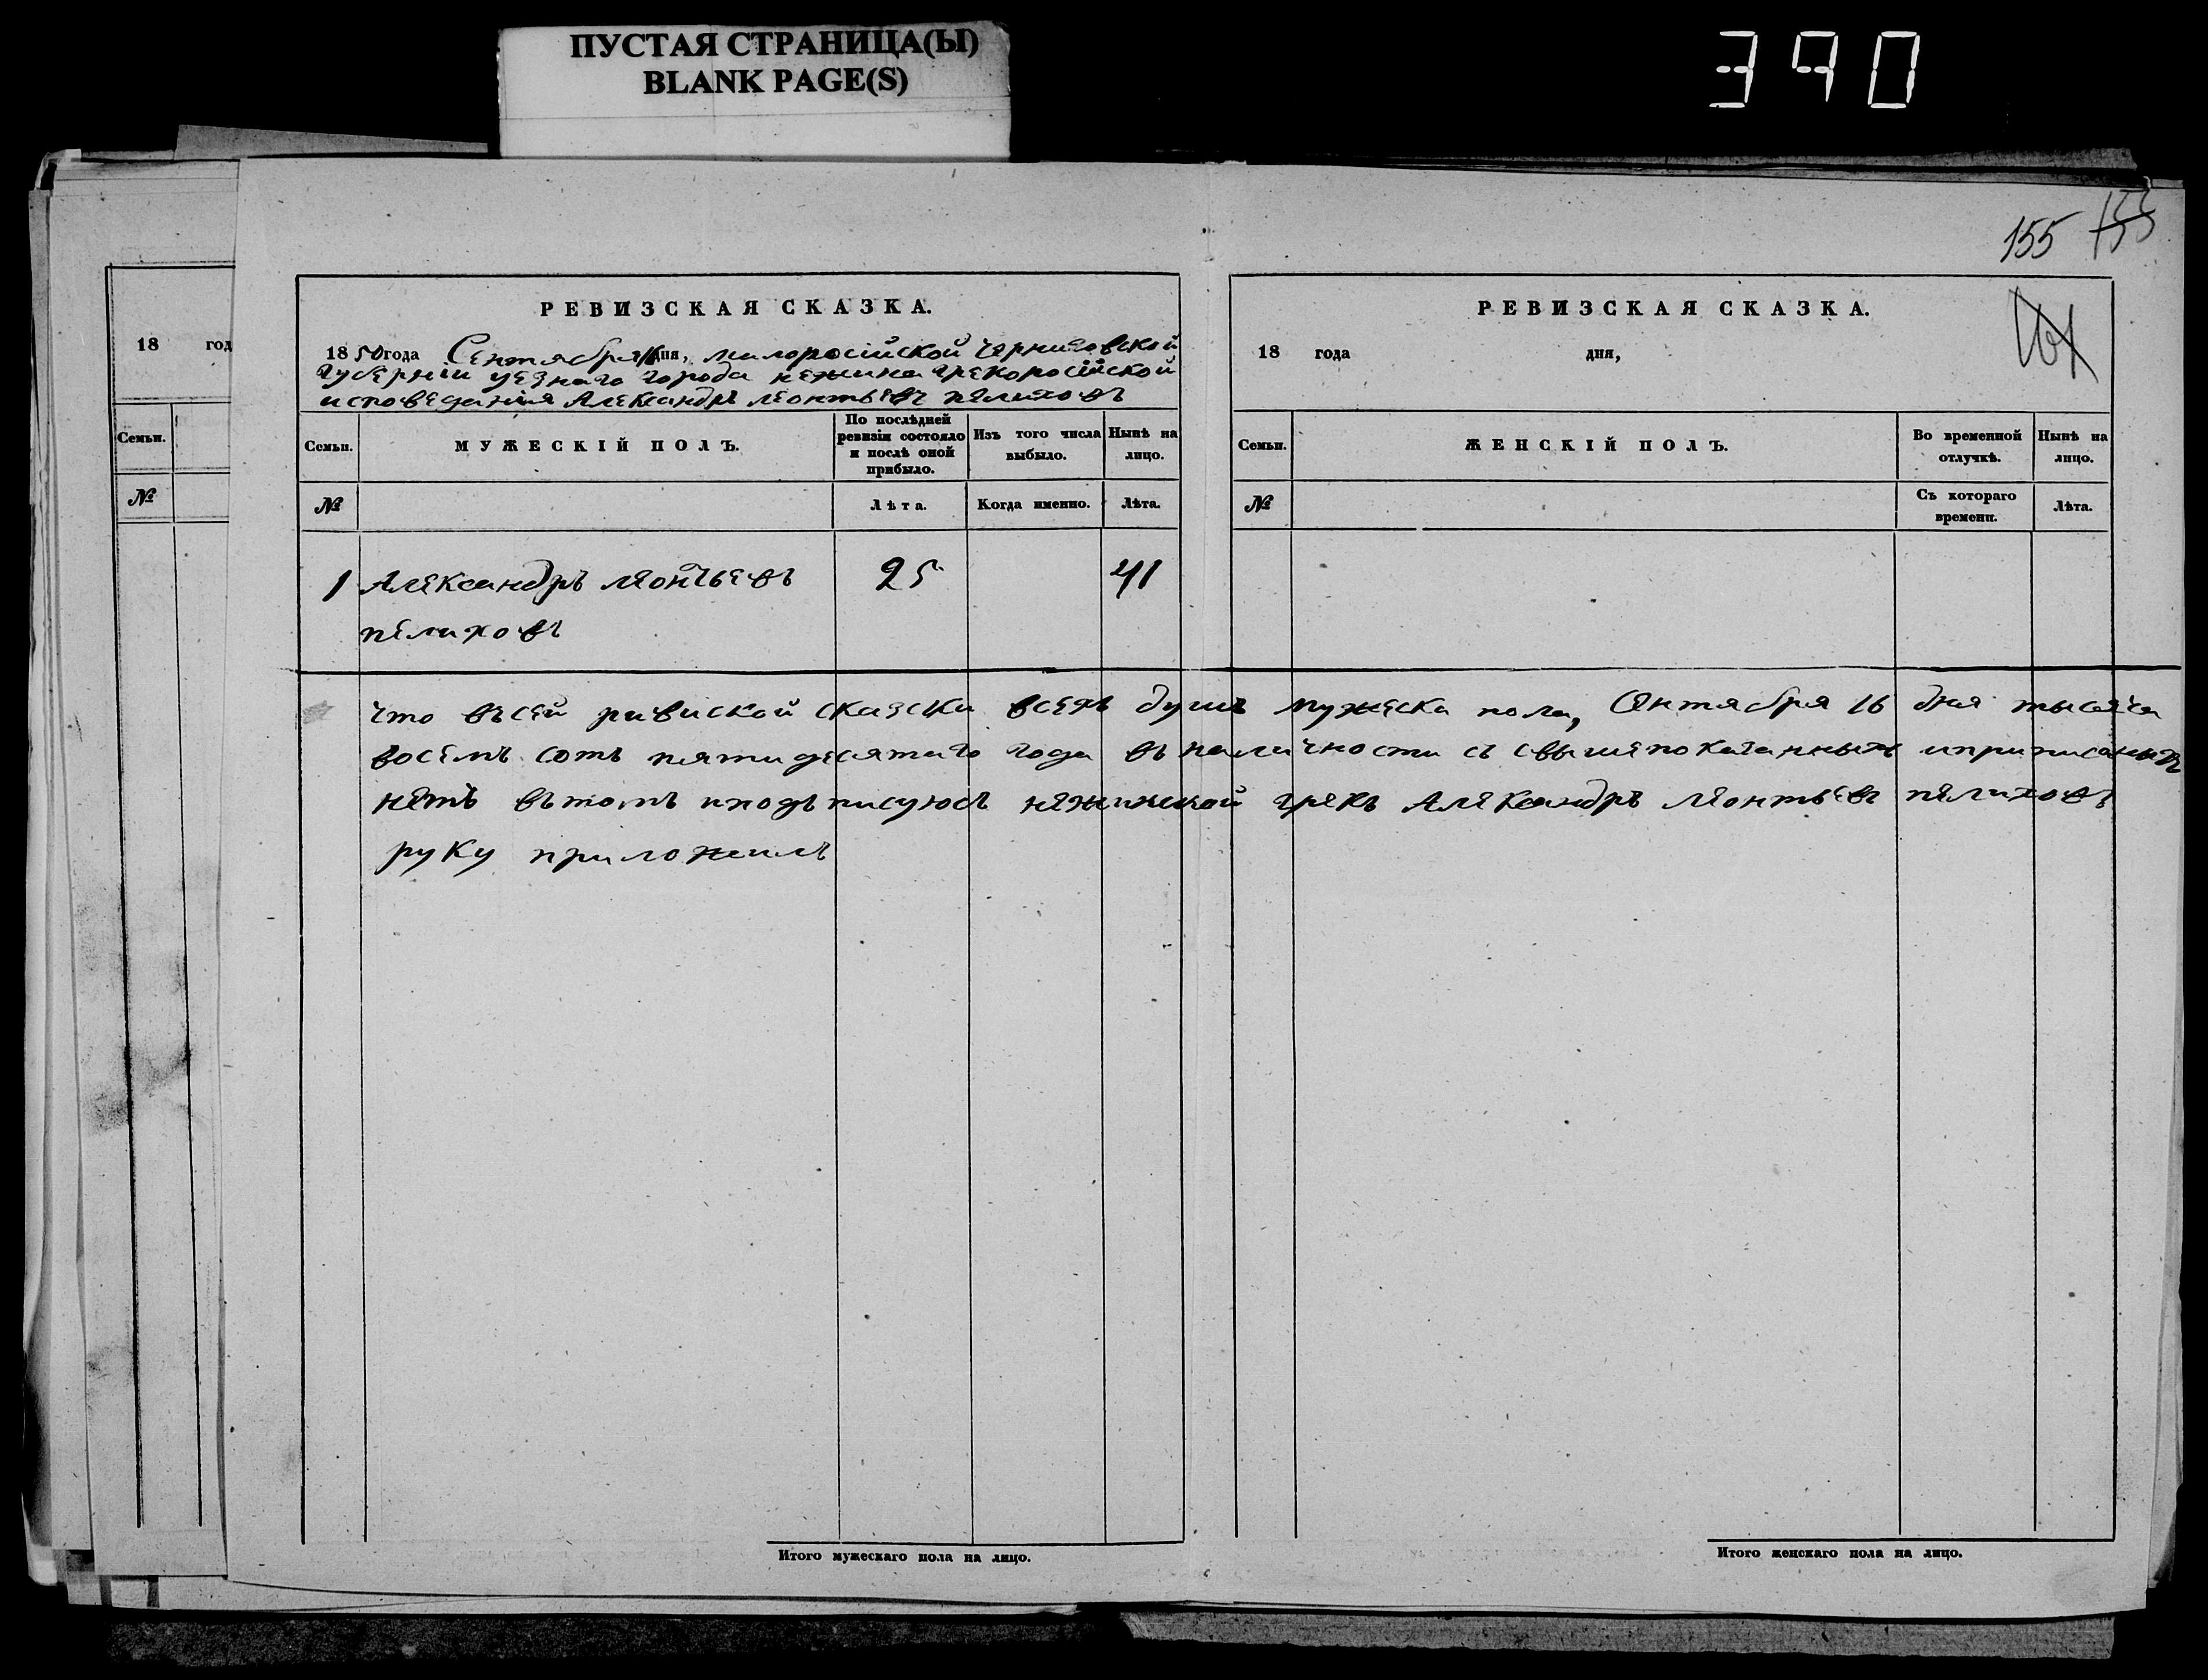 ПУСТАЯ СТРАНИЦА(Ы)
BLANK PAGE(S)
390
155 155
18 год
Семьи.
№
РЕВИЗСКАЯ СКАЗКА.
1850 года Сентября 16 дня, малоросійской черниговской
губерніи уезнаго города нежина грекоросійской
исповедания Александръ леонтьевъ пелиховъ
Семьи.
МУЖЕСКІЙ ПОЛЪ.
По послѣдней ревизіи состояло и послѣ оной прибыло.
Изъ того числа выбыло.
Нынѣ на лицо.
№
Лѣта.
Когда именно.
Лѣта.
1 Александръ леонтьевъ 25 41
пелиховъ
РЕВИЗСКАЯ СКАЗКА.
18 года дня,
161
Семьи.
ЖЕНСКІЙ ПОЛЪ.
Во временной отлучкѣ.
Нынѣ на лицо.
№
Съ котораго времени.
Лѣта.
что въсей ривиской сказски всехъ душъ мужеска пола, Сентября 16 дня тысеча
восемъ сотъ пятидесятаго года въ наличности съ свышепоказанныхъ иприписаныхъ
нетъ вътомъ иподъписуюсъ нежинской грекъ Александръ леонтьевъ пелиховъ
руку приложилъ
Итого мужескаго пола на лицо.
Итого женскаго пола на лицо.